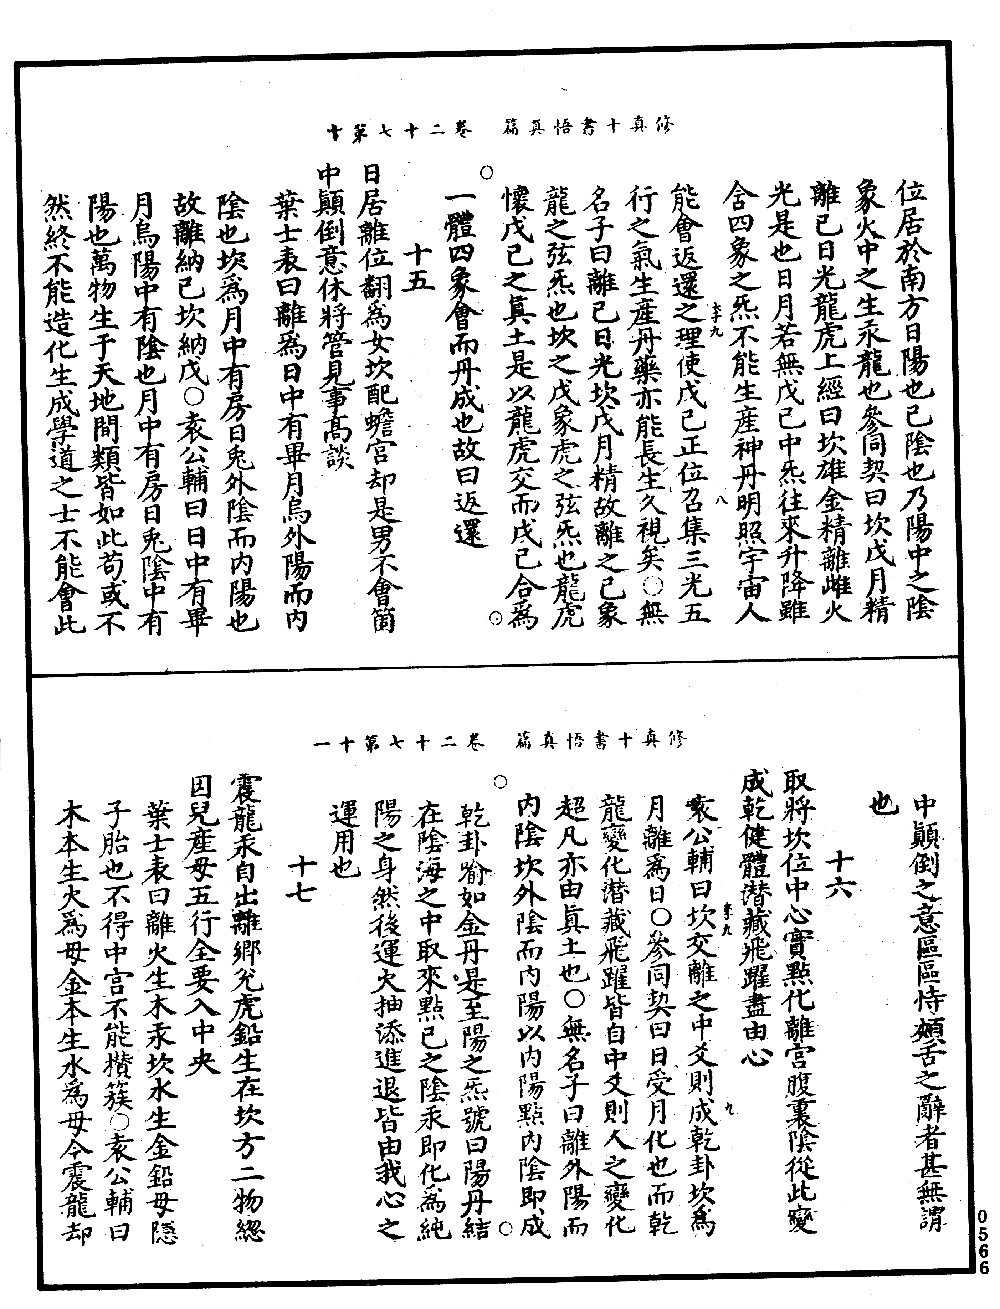 修真十書悟真篇　卷二十七第十
位居於南方日陽也己陰也乃陽中之陰
象火中之生汞龍也參同契曰坎戊月精
離己日光龍虎上經曰坎雄金精離雌火
光是也日月若無戊己中炁往來升降雖
含四象之炁不能生産神丹明照宇宙人
能會返還之理使戊己正位召集三光五
行之氣生産丹藥亦能長生久視矣○無
名子曰離己日光坎戊月精故離之己象
龍之弦炁也坎之戊象虎之弦炁也龍虎
懷戊己之真土是以龍虎交而戊己合爲
一體四象會而丹成也故曰返還
十五
日居離位翻為女坎配蟾宮却是男不會箇
中顛倒意休將管見事高談
葉士表曰離為日中有畢月烏外陽而内
陰也坎為月中有房日兎外陰而内陽也
故離納己坎納戊○袁公輔曰日中有畢
月烏陽中有陰也月中有房日兎陰中有
陽也萬物生于天地間類皆如此苟或不
然終不能造化生成學道之士不能會此
修真十書悟真篇　卷二十七第十一
中顛倒之意區區恃頰舌之辭者甚無謂
也
十六
取將坎位中心實點化離宫腹裏陰從此變
成乾健體潛藏飛躍盡由心
袁公輔曰坎交離之中爻則成乾卦坎爲
月離爲日○參同契曰日受月化也而乾
龍變化潛藏飛躍皆自中爻則人之變化
超凡亦由真土也○無名子曰離外陽而
内陰坎外陰而内陽以内陽點内陰即成
乾卦喻如金丹是至陽之炁號曰陽丹結
在陰海之中取來點己之陰汞即化為純
陽之身然後運火抽添進退皆由我心之
運用也
十七
震龍汞自出離鄉兊虎鉛生在坎方二物緫
因兒産母五行全要入中央
葉士表曰離火生木汞坎水生金鉛母隱
子胎也不得中宫不能攅簇○袁公輔曰
木本生火爲母金本生水為母今震龍却
0566